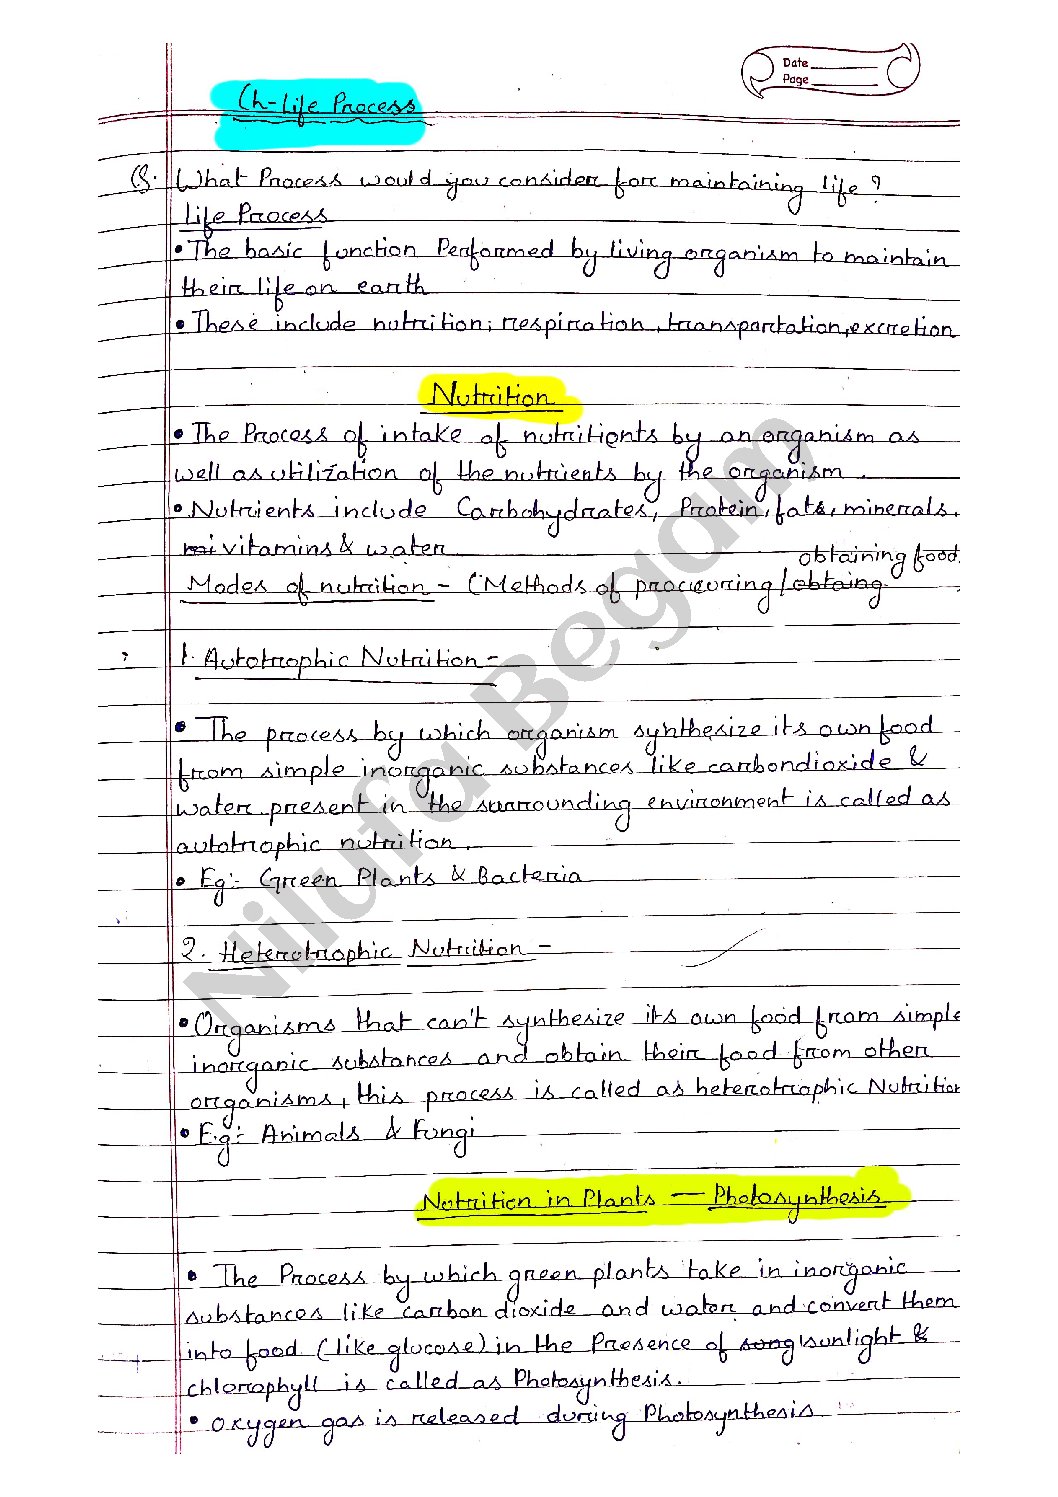 Date
Page
Ch-Life Process
Q. What Process would you consider for maintaining life?
Life Process
• The basic function Performed by living organism to maintain
their life on earth
• These include nutrition, respiration, transportation, excretion
Nutrition
• The Process of intake of nutritients by an organism as
well as utilization of the nutrients by the organism.
• Nutrients include Carbohydrates, Protein, fats, minerals,
mi vitamins & water
obtaining food.
Modes of nutrition - (Methods of procuring / obtaing
1. Autotrophic Nutrition -
• The process by which organism synthesize its own food
from simple inorganic substances like carbondioxide &
water present in the surrounding environment is called as
autotrophic nutrition.
• Eg:- Green Plants & Bacteria
2. Heterotrophic Nutrition -
• Organisms that can't synthesize its own food from simple
inorganic substances and obtain their food from other
organisms, this process is called as heterotrophic Nutrition
• E.g:- Animals & Fungi
Nutrition in Plants — Photosynthesis
• The Process by which green plants take in inorganic
substances like carbon dioxide and water and convert them
into food (like glucose) in the Presence of song sunlight &
chlorophyll is called as Photosynthesis.
• Oxygen gas is released during Photosynthesis
Nilufa Begam